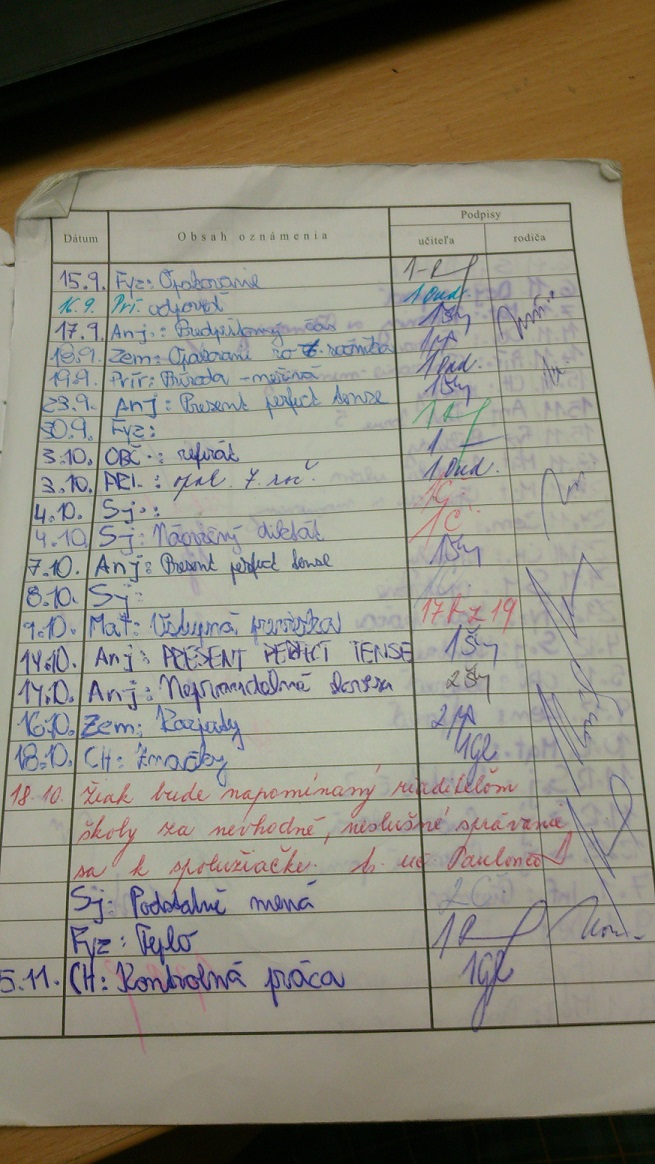 Podpisy
Dátum Obsah oznámenia učiteľa rodiča
15.9. Fyz: Opakovanie 1
16.9. Prí: odpoveď 1 Dud.
17.9. Anj.: Predprítomný čas 1Šy
18.9. Zem: Opakovanie zo 7. ročníka 1
19.9. Prír: Príroda - 1 Dud.
23.9. Anj: Present perfect tense 1Šy
30.9. Fyz: 1
3.10. OBČ.: referát 1
3.10. PRI.: opak. 7. roč. 1 Dud.
4.10. Sj.: 1Č
4.10. Sj: diktát 1Č
7.10. Anj: Present perfect tense 1Šy
8.10. Sj:
9.10. Mat: Vstupná previerka 17b z 19
14.10. Anj: PRESENT PERFECT TENSE 1Šy
14.10. Anj: Nepravidelné slovesá 2Šy
16.10. Zem: 2
18.10. CH: Značky 1Gl
18.10. Žiak bude napomínaný riaditeľom
školy za nevhodné, neslušné správanie
sa k spolužiačke.
Sj: Podstatné mená 2Č
Fyz: Teplo 1
5.11. CH: Kontrolná práca 1Gl